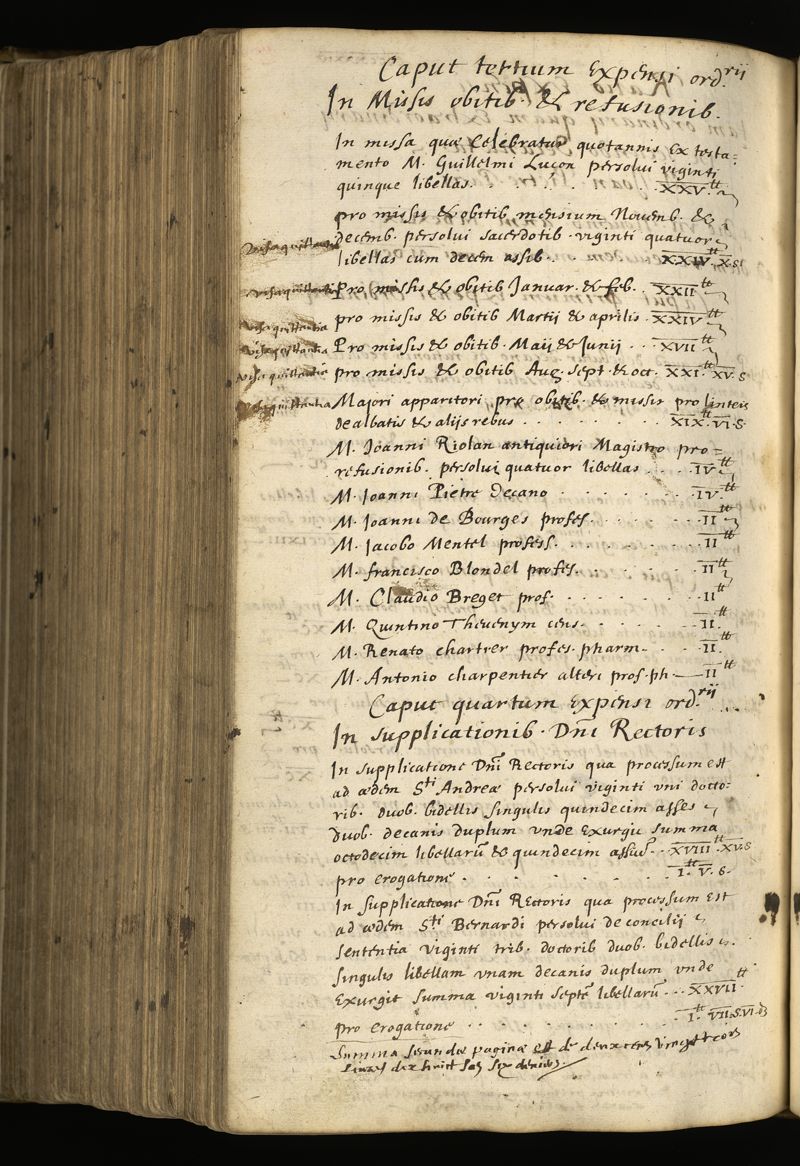 Caput tertium Expensi ord.rii
In Missis obitib. & refusionib.
In missa quæ Celebratur quotannis ex testa=
mento M. Guillelmi Luçon persolui viginti
quinque libellas. XXV.tt
pro missis & obitib. mensium Novemb. &
decemb. persolui sacerdotib. viginti quatuor
libellas cum decem assib. XXIV.tt X.s
visa quittantia
visa quittantia Pro missis & obitib. Januar. & feb. XXII tt
visa quittantia pro missis & obitib. Martii & aprilis. XXIV tt
visa quittantia Pro missis & obitib. Maii & Junij .. XVII tt
visa quittantia pro missis & obitib. Aug. sept. & oct. XXI.tt XV.s
visa quittantia Majori apparitori pro obitib. & missis pro linteis
dealbatis & alijs rebus . . . . . . . . XIX.tt VI.s.
M. Joanni Riolan antiquiori Magistro pro=
refusionib. persolui quatuor libellas . . . . IV.tt
M. Joanni Pietre Decano . . . . . . IV.tt
M. Joanni de Bourges profes. . . . . . II tt
M. Jacobo Mentel profess. . . . . . . II tt
M. francisco Blondel profes. . . . . . II tt
M. Claudio Breget prof. . . . . . . II tt
M. Quintino Thevenym cens. . . . . . II. tt
M. Renato chartrer profes. pharm. . . . II. tt
M. Antonio charpentier alteri prof. ph. — II tt
Caput quartum Expensi ord.rii
In supplicationib. Dni Rectoris
In supplicatione Dni Rectoris qua processum est
ad ædem Sti Andreæ persolui viginti uni docto=
rib. duob. bidellis singulis quindecim asses
duob. decanis duplum unde Exurgit summa
octodecim libellarũ & quindecim assiũ. XVIII.tt XV.s
pro erogatione . . . . . . . I.tt V.s.
In supplicatione Dni Rectoris qua processum est
ad ædem Sti Bernardi persolui de concilij
sententia viginti trib. doctorib. duob. bidellis
singulis libellam unam decanis duplum unde
Exurgit summa viginti septẽ libellarũ... XXVII tt
pro erogatione . . . . . . . I.tt VII.s VI.d
Summa secundæ paginæ est de deux cens vingt trois
livres dix huict sols six deniers